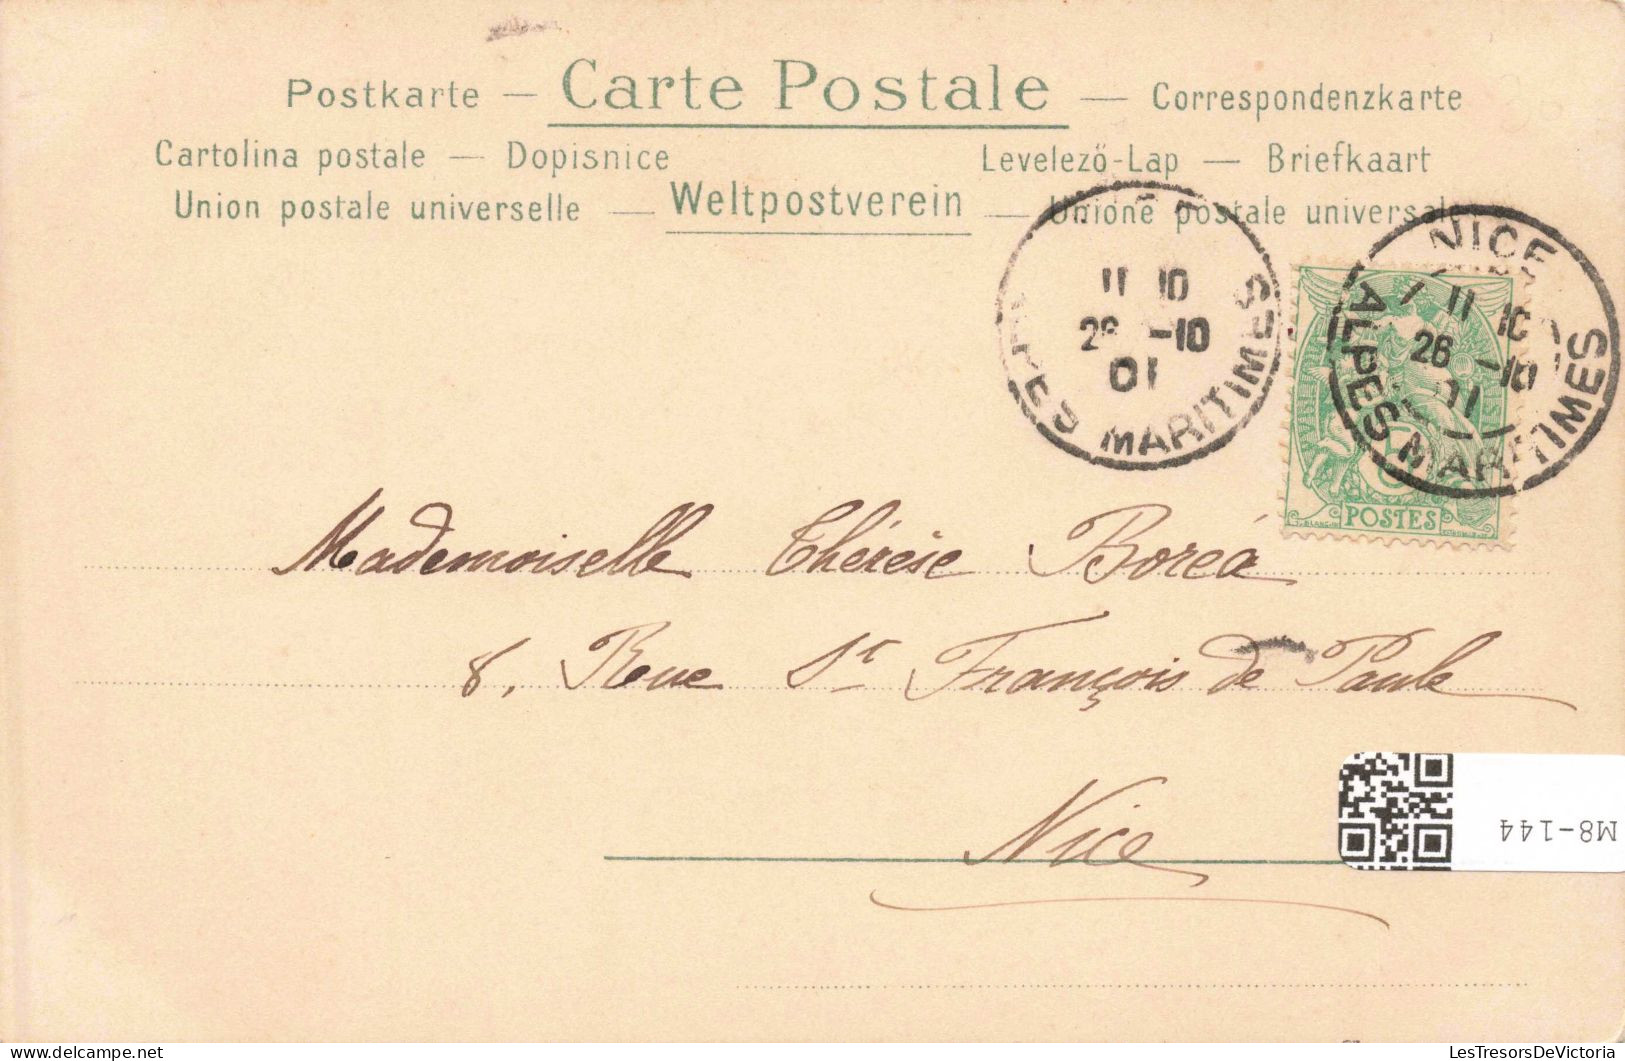 Postkarte — Carte Postale — Correspondenzkarte
Cartolina postale — Dopisnice
Levelező-Lap — Briefkaart
Union postale universelle — Weltpostverein — Unione postale universale
11 10
26 -10
01
ALPES MARITIMES
NICE
11 10
26 -10
01
ALPES MARITIMES
5
POSTES
Mademoiselle Thérèse Boréa
8, Rue St François de Paule
Nice
M8-144
LesTresorsDeVictoria